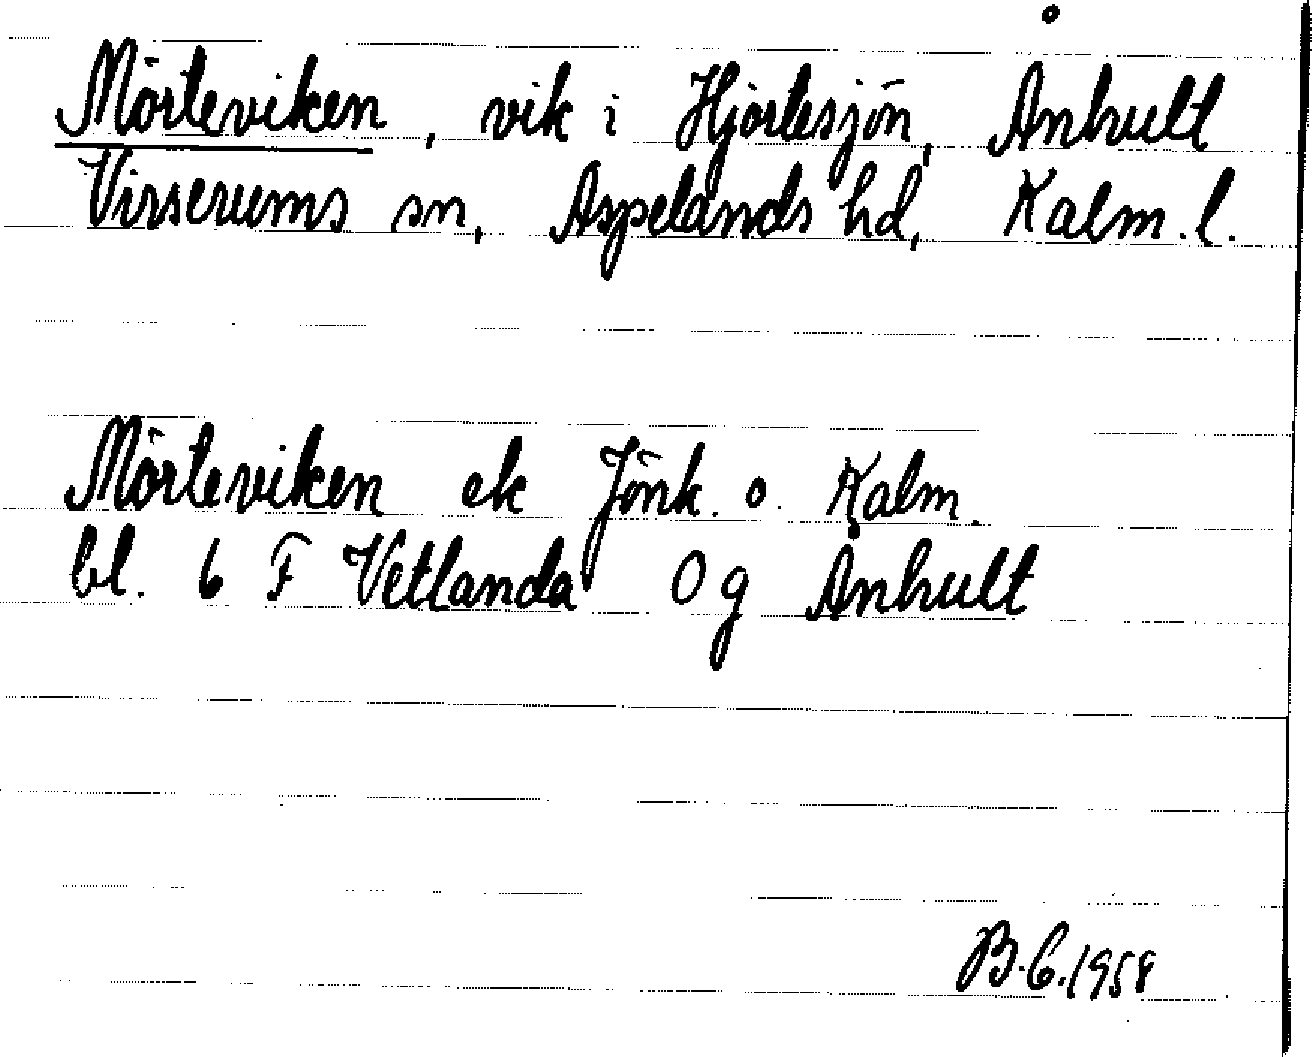 Mörteviken, vik i Hjortesjön, Ånhult
Virserums sn, Aspelands hd, Kalm. l.
Mörteviken ek Jönk. o. Kalm.
bl. 6 F Vetlanda 0 g Ånhult
B.C.1958